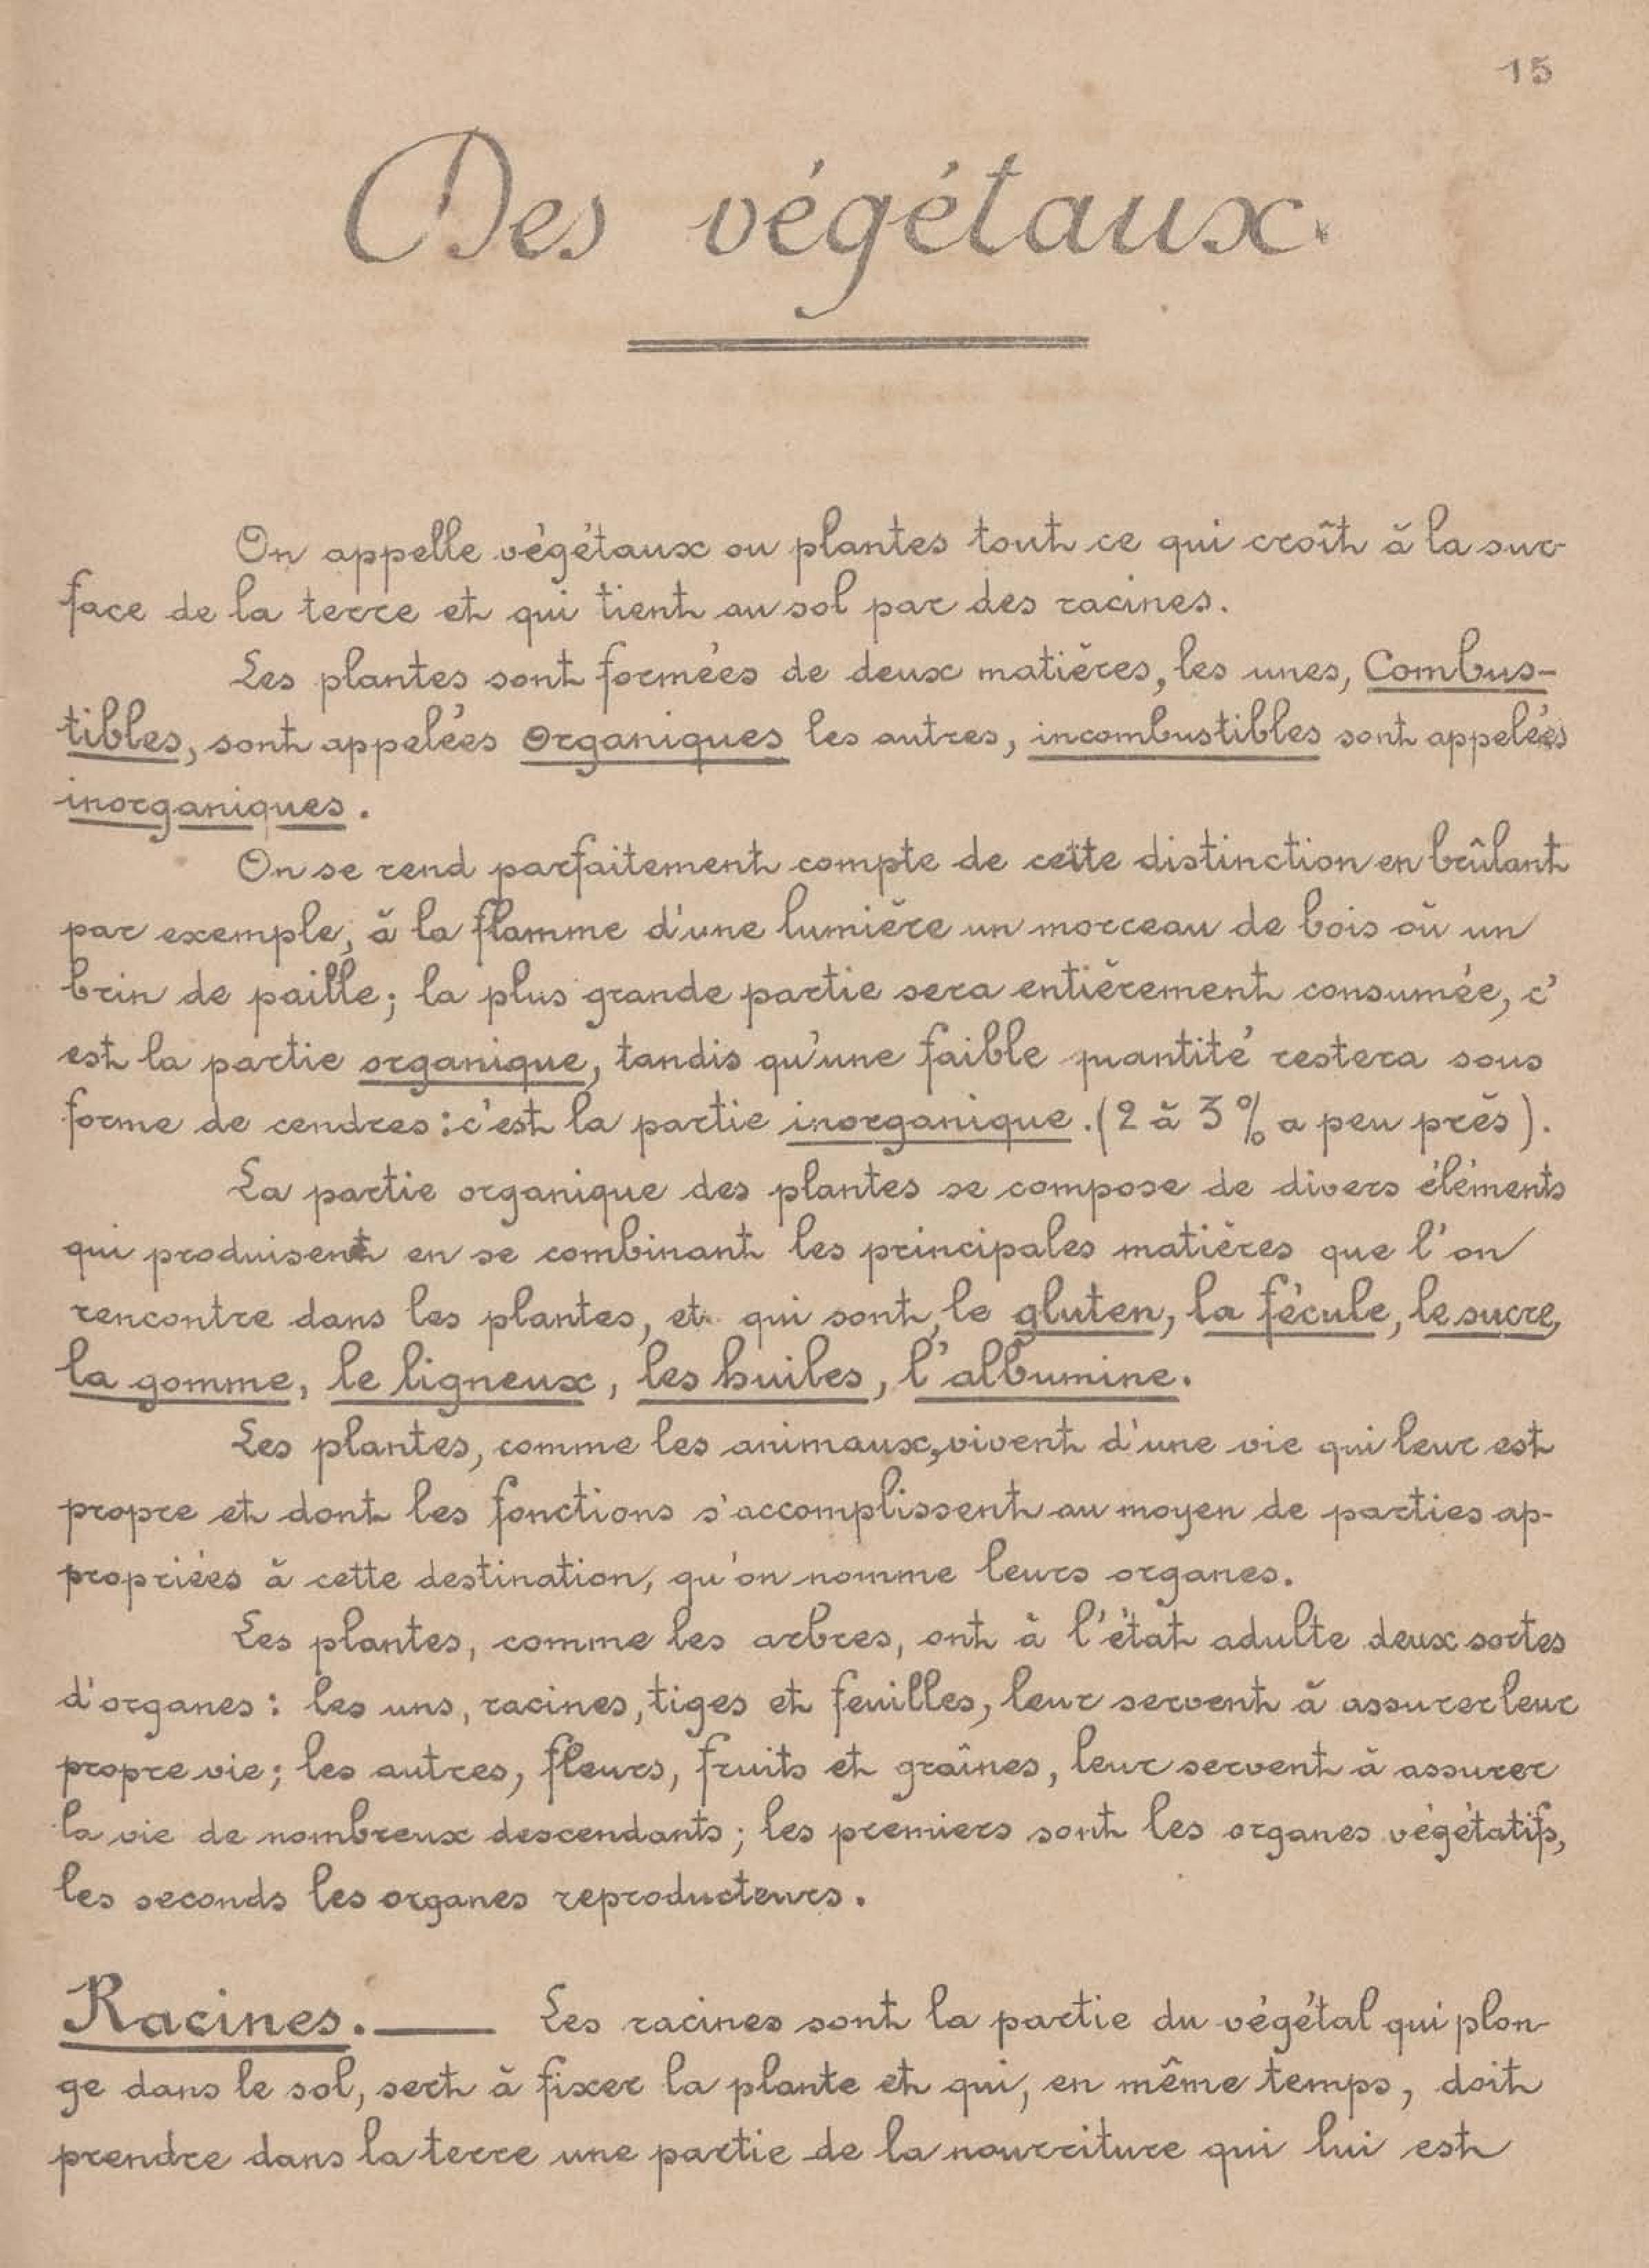 15
Des végétaux.
On appelle végétaux ou plantes tout ce qui croît à la sur-
face de la terre et qui tient au sol par des racines.
Les plantes sont formées de deux matières, les unes, Combus-
tibles, sont appelées Organiques les autres, incombustibles sont appelées
inorganiques.
On se rend parfaitement compte de cette distinction en brûlant
par exemple, à la flamme d'une lumière un morceau de bois où un
brin de paille; la plus grande partie sera entièrement consumée, c'
est la partie organique, tandis qu'une faible quantité restera sous
forme de cendres: c'est la partie inorganique. (2 à 3 % a peu près).
La partie organique des plantes se compose de divers éléments
qui produisent en se combinant les principales matières que l'on
rencontre dans les plantes, et qui sont, le gluten, la fécule, le sucre,
la gomme, le ligneux, les huiles, l'albumine.
Les plantes, comme les animaux, vivent d'une vie qui leur est
propre et dont les fonctions s'accomplissent au moyen de parties ap-
propriées à cette destination, qu'on nomme leurs organes.
Les plantes, comme les arbres, ont à l'état adulte deux sortes
d'organes: les uns, racines, tiges et feuilles, leur servent à assurer leur
propre vie; les autres, fleurs, fruits et graînes, leur servent à assurer
la vie de nombreux descendants; les premiers sont les organes végétatifs,
les seconds les organes reproducteurs.
Racines.— Les racines sont la partie du végétal qui plon-
ge dans le sol, sert à fixer la plante et qui, en même temps, doit
prendre dans la terre une partie de la nourriture qui lui est